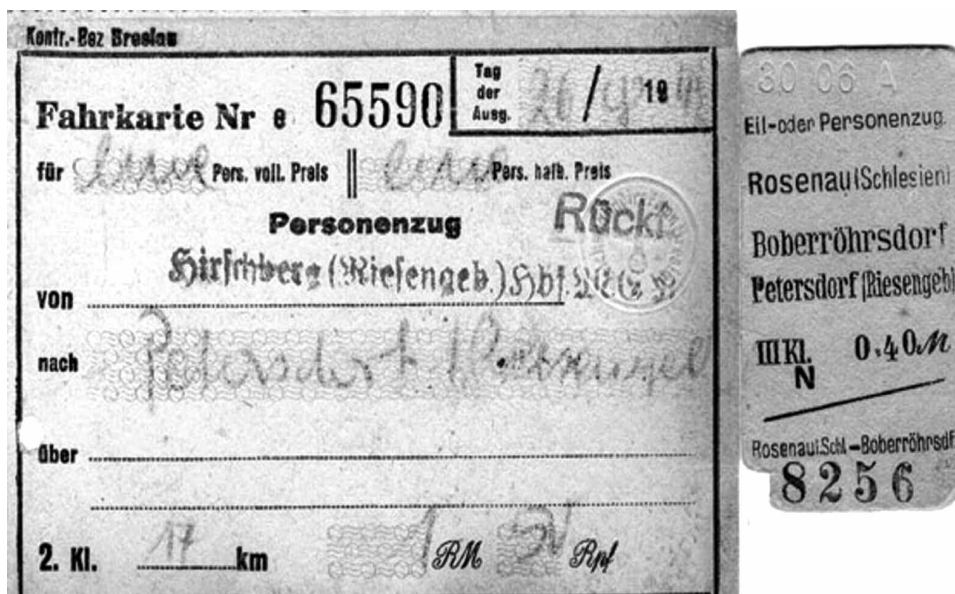 Kontr.-Bez Breslau
Fahrkarte Nr e 65590
Tag
der
Ausg.
26/ 19
für eine Pers. voll. Preis eine Pers. halb. Preis
Personenzug
Rückf
von Hirschberg (Riesengeb.) Hbf
nach Petersdorf
über
2. Kl. 17 km RM Rpf
30 06 A
Eil-oder Personenzug
Rosenau (Schlesien)
Boberröhrsdorf
Petersdorf (Riesengeb)
III Kl. 0.40 M
N
Rosenau i. Schl.-Boberröhrsdf
8256